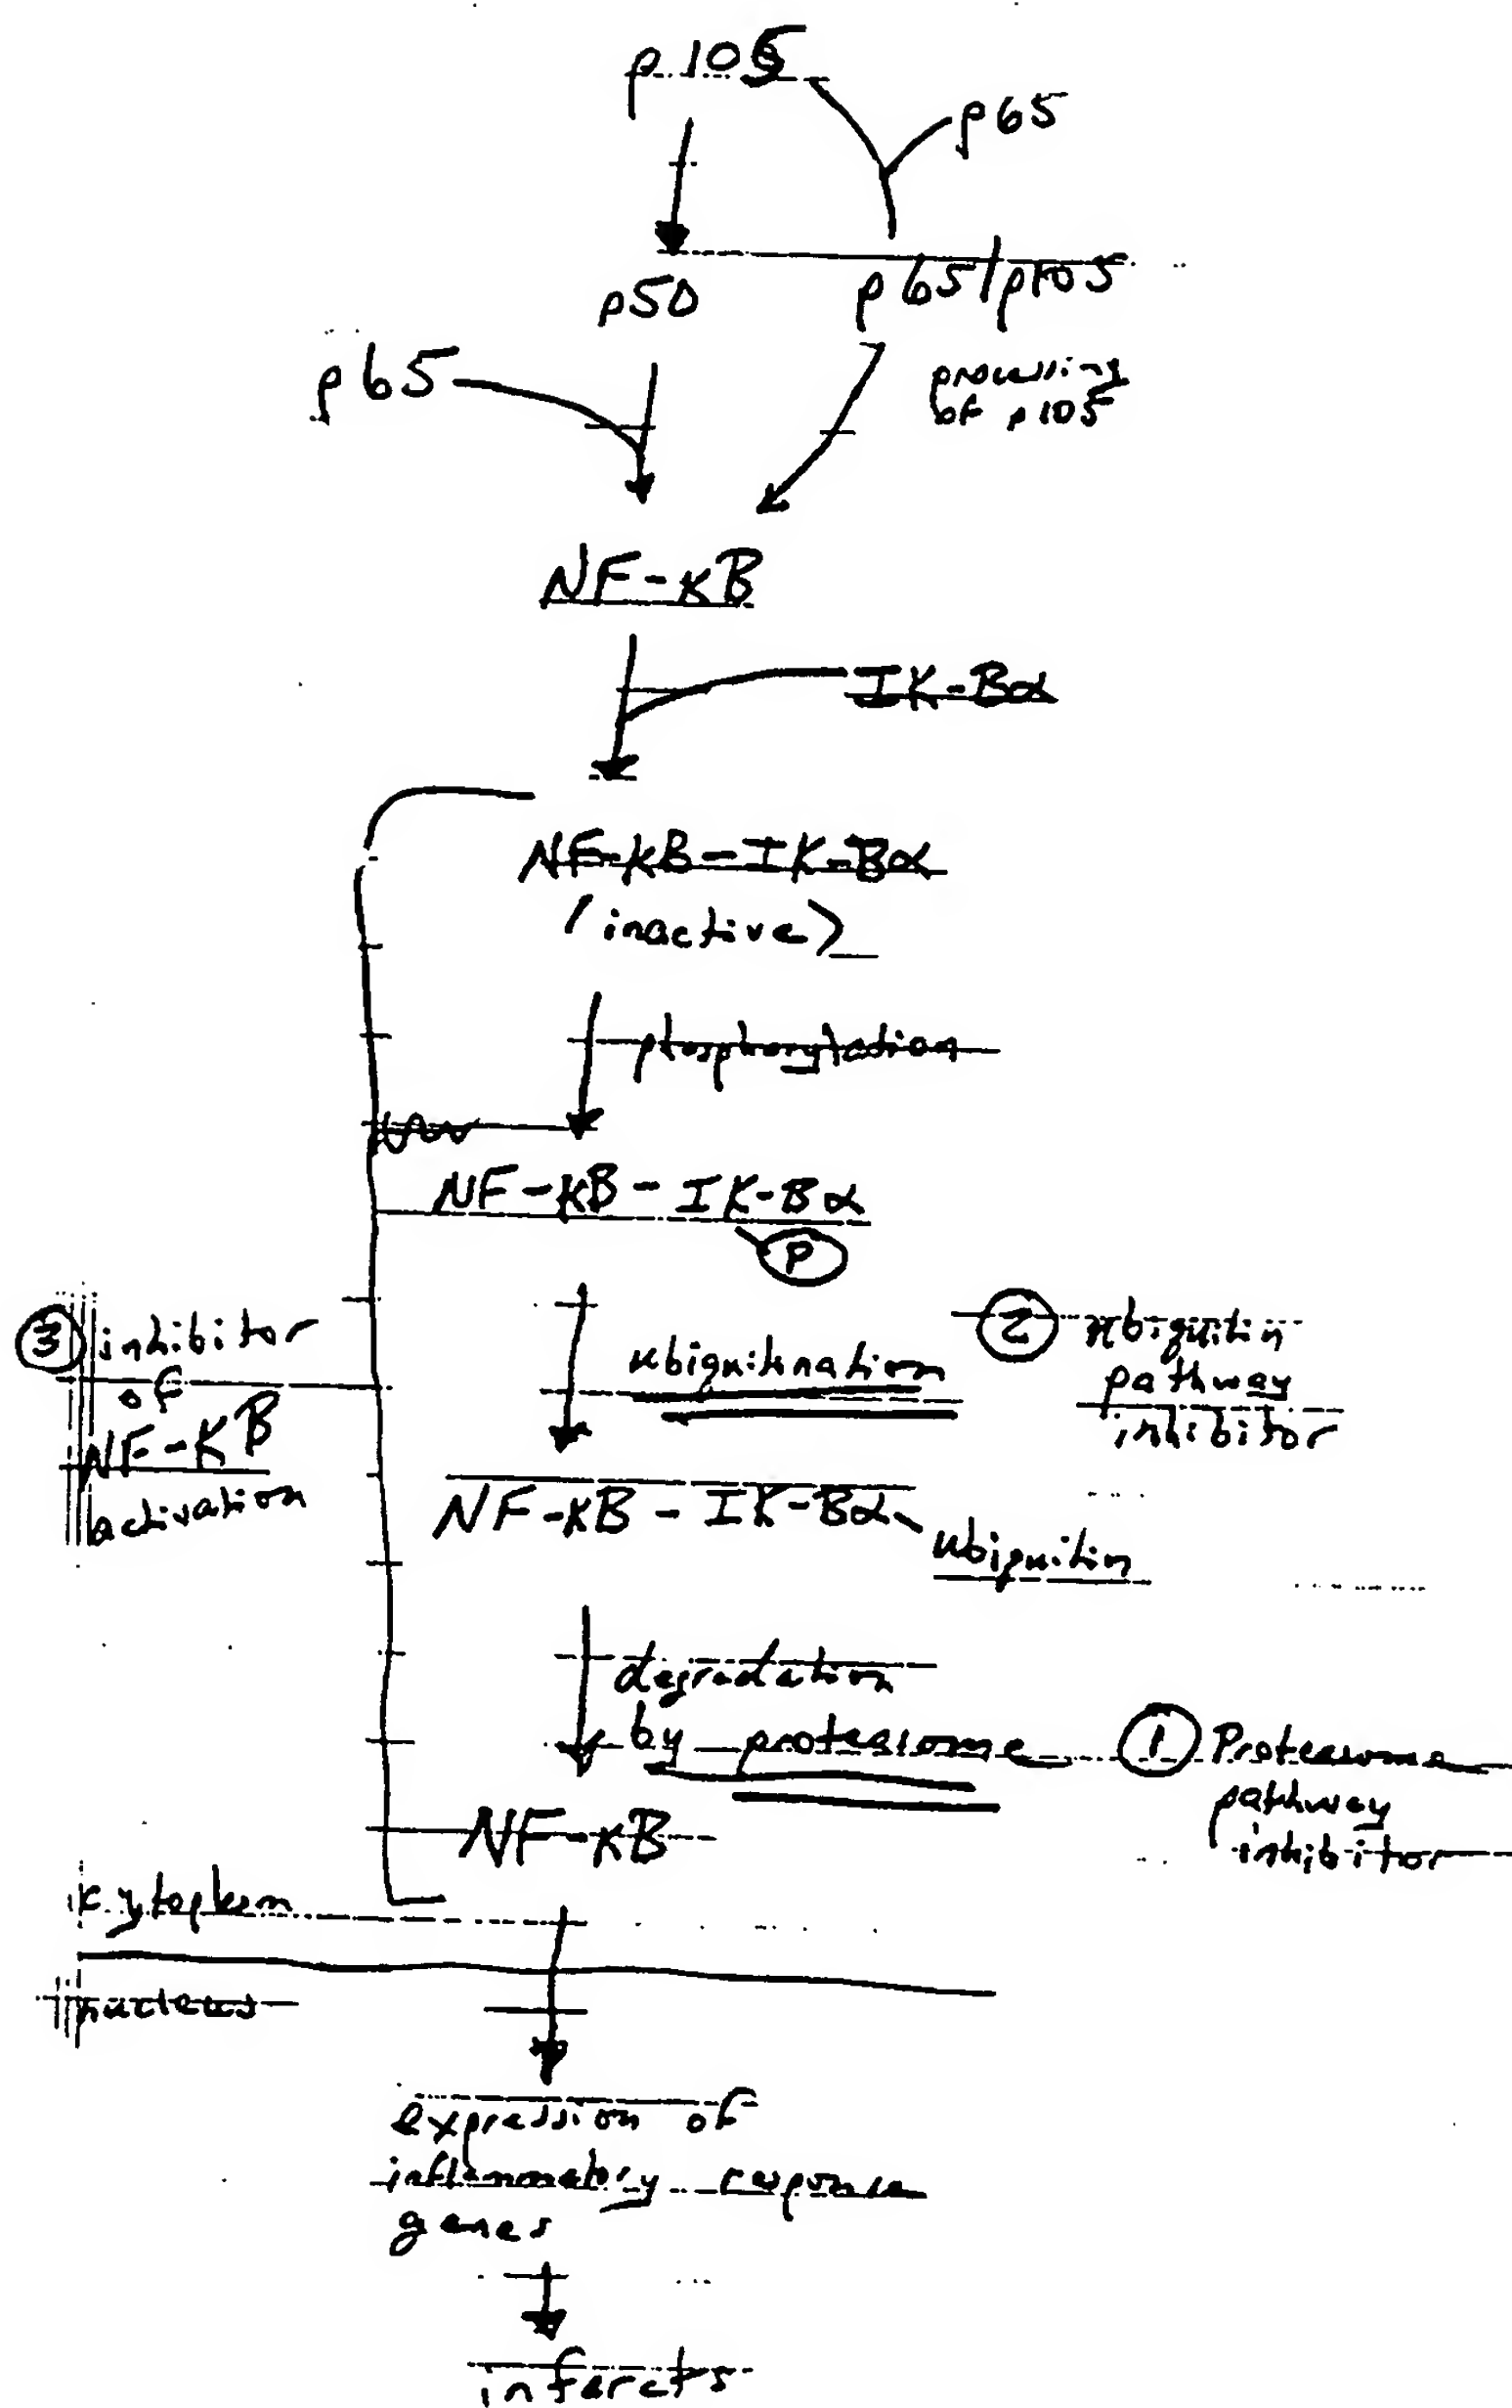 p105
p65
p50
p65/p105
p65
processing
of p105
NF-κB
IK-Bα
NF-κB-IK-Bα
(inactive)
phosphorylation
NF-κB-IK-Bα
P
③ inhibitor
of
NF-κB
activation
ubiquitination
② ubiquitin
pathway
inhibitor
NF-κB-IK-Bα
ubiquitin
degradation
by proteasome
① Proteasome
pathway
inhibitor
NF-κB
cytoplasm
nucleus
expression of
inflammatory response
genes
infarcts